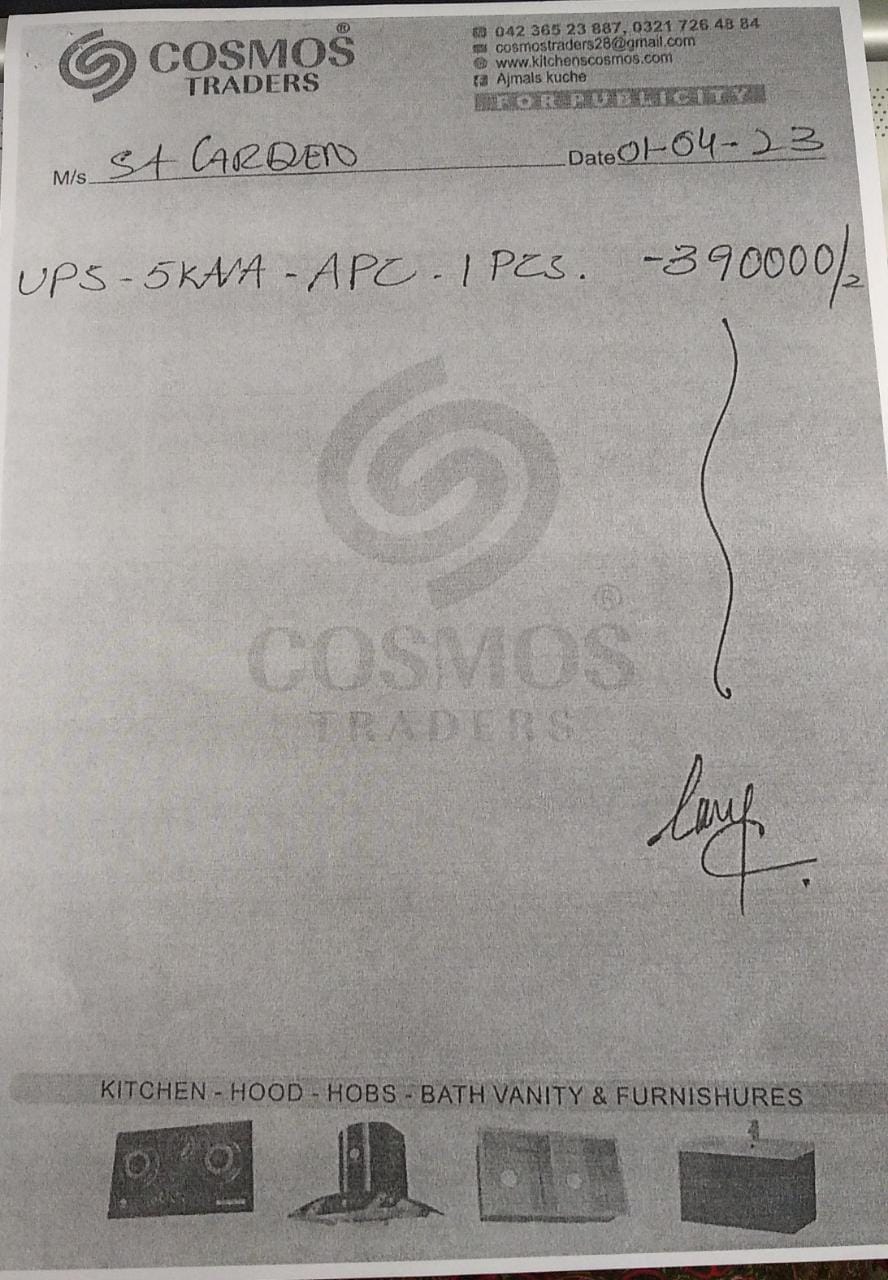 COSMOS ®
TRADERS
042 365 23 887, 0321 726 48 84
cosmostraders28@gmail.com
www.kitchenscosmos.com
Ajmals kuche
FOR PUBLICITY
M/s St GARDEN Date 01-04-23
UPS - 5KVA - APC - 1 PCS. - 390000/2
COSMOS ®
TRADERS
KITCHEN - HOOD - HOBS - BATH VANITY & FURNISHURES